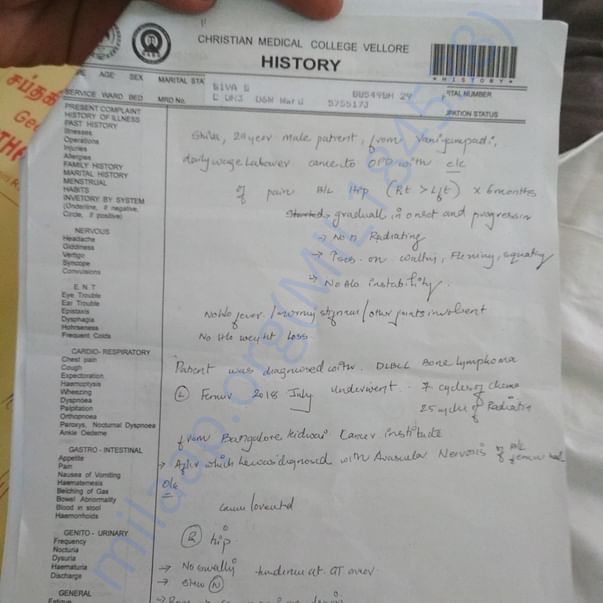 CHRISTIAN MEDICAL COLLEGE VELLORE
HISTORY
*HISTORY*
AGE SEX MARITAL STA
SIVA G
SERVICE WARD BED MRD No.
PITAL NUMBER
PATION STATUS
PRESENT COMPLAINT
HISTORY OF ILLNESS
PAST HISTORY
Illnesses
Operations
Injuries
Allergies
FAMILY HISTORY
MARITAL HISTORY
MENSTRUAL
HABITS
INVETORY BY SYSTEM
(Underline, if negative,
Circle, if positive)
NERVOUS
Headache
Giddiness
Vertigo
Syncope
Convulsions
E. N.T
Eye Trouble
Ear Trouble
Epistaxis
Dysphagia
Hohrseness
Frequent Colds
CARDIO- RESPIRATORY
Chest pain
Cough
Expectoration
Haemoptysis
Wheezing
Dyspnoea
Palpitation
Orthopnoea
Paroxys, Nocturnal Dyspnoea
Ankle Oedeme
GASTRO - INTESTINAL
Appetite
Pain
Nausea of Vomiting
Haematemesis
Belching of Gas
Bowel Abnormality
Blood in stool
Haemonhoids
GENITO - URINARY
Frequency
Nocturia
Dysuria
Haematuria
Discharge
GENERAL
Fatigue
Shiva, 29 year male patient, from Vaniyampadi,
daily wage labourer came to OPD with c/c
of pain B/L Hip (Rt > Lft) x 6 months
Started gradual in onset and progression
→ Non Radiating
on walking, squatting
→ No H/o instability.
No H/o fever / morning stiffness / other joints involvement
No H/o weight loss
Patient was diagnosed with DLBCL Bone Lymphoma
(L) Femur 2018 July underwent 7 cycles of chemo
25 cycles of Radiation
from Bangalore kidwai Cancer institute
→ After which he was diagnosed with Avascular Necrosis of B/L femur head
O/e
→ No swelling
→ Skin (N)
milaap.org